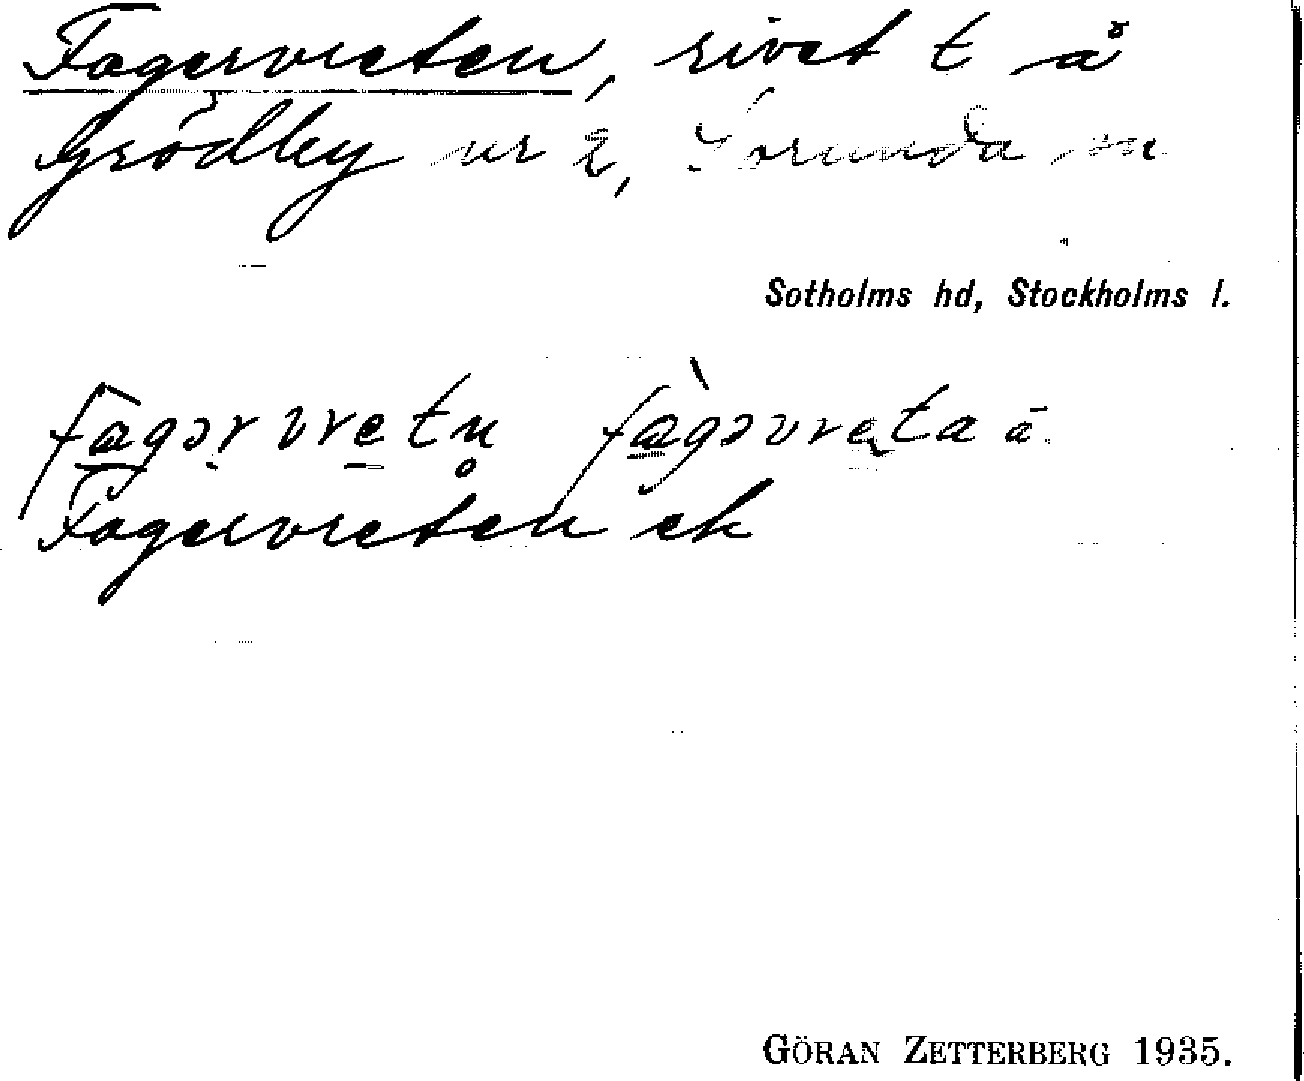 Fagervreten, rivet t å
Grödby nr 2, Sorunda sn
Sotholms hd, Stockholms l.
fagər vretn̥ fàgəvreta
Fagervreten ek
GÖRAN ZETTERBERG 1935.